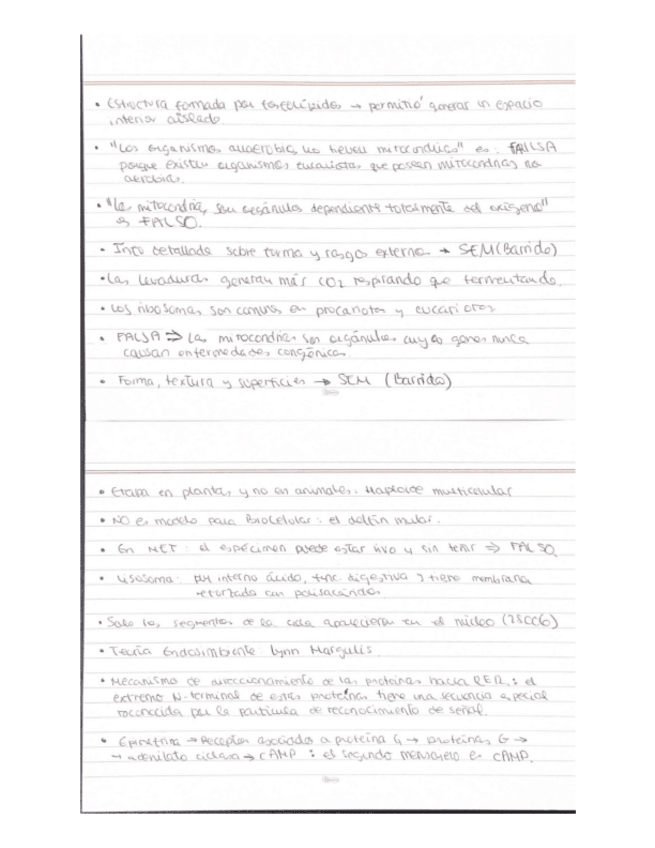 • Estructura formada por fosfolípidos → permitió generar un espacio
interior aislado.
• "Los organismos anaerobios no tienen mitocondrias" es: FALSA
porque existen organismos eucariotas que poseen mitocondrias no
aerobias.
• "Las mitocondrias son orgánulos dependientes totalmente del oxígeno"
es FALSO.
• Info detallada sobre forma y rasgos externos → SEM (Barrido)
• Las levaduras generan más CO2 respirando que fermentando.
• Los ribosomas son comunes en procariotas y eucariotas
• FALSA ⇒ Las mitocondrias son orgánulos cuyos genes nunca
causan enfermedades congénitas.
• Forma, textura y superficies → SEM (Barrido)
• Etapa en plantas y no en animales: Haploide multicelular
• NO es modelo para BioCelular: el delfín mular.
• En MET: el espécimen puede estar vivo y sin teñir ⇒ FALSO.
• Lisosoma: pH interno ácido, func digestiva y tiene membrana
reforzada con polisacáridos
• Solo los segmentos de la cola aparecieron en el núcleo (2SCC6)
• Teoría Endosimbionte: Lynn Margulis.
• Mecanismo de direccionamiento de las proteínas hacia RER: el
extremo N-terminal de estas proteínas tiene una secuencia especial
reconocida por la partícula de reconocimiento de señal.
• Epinefrina → Receptor asociado a proteína G → proteínas G →
→ adenilato ciclasa → cAMP : el segundo mensajero es cAMP.